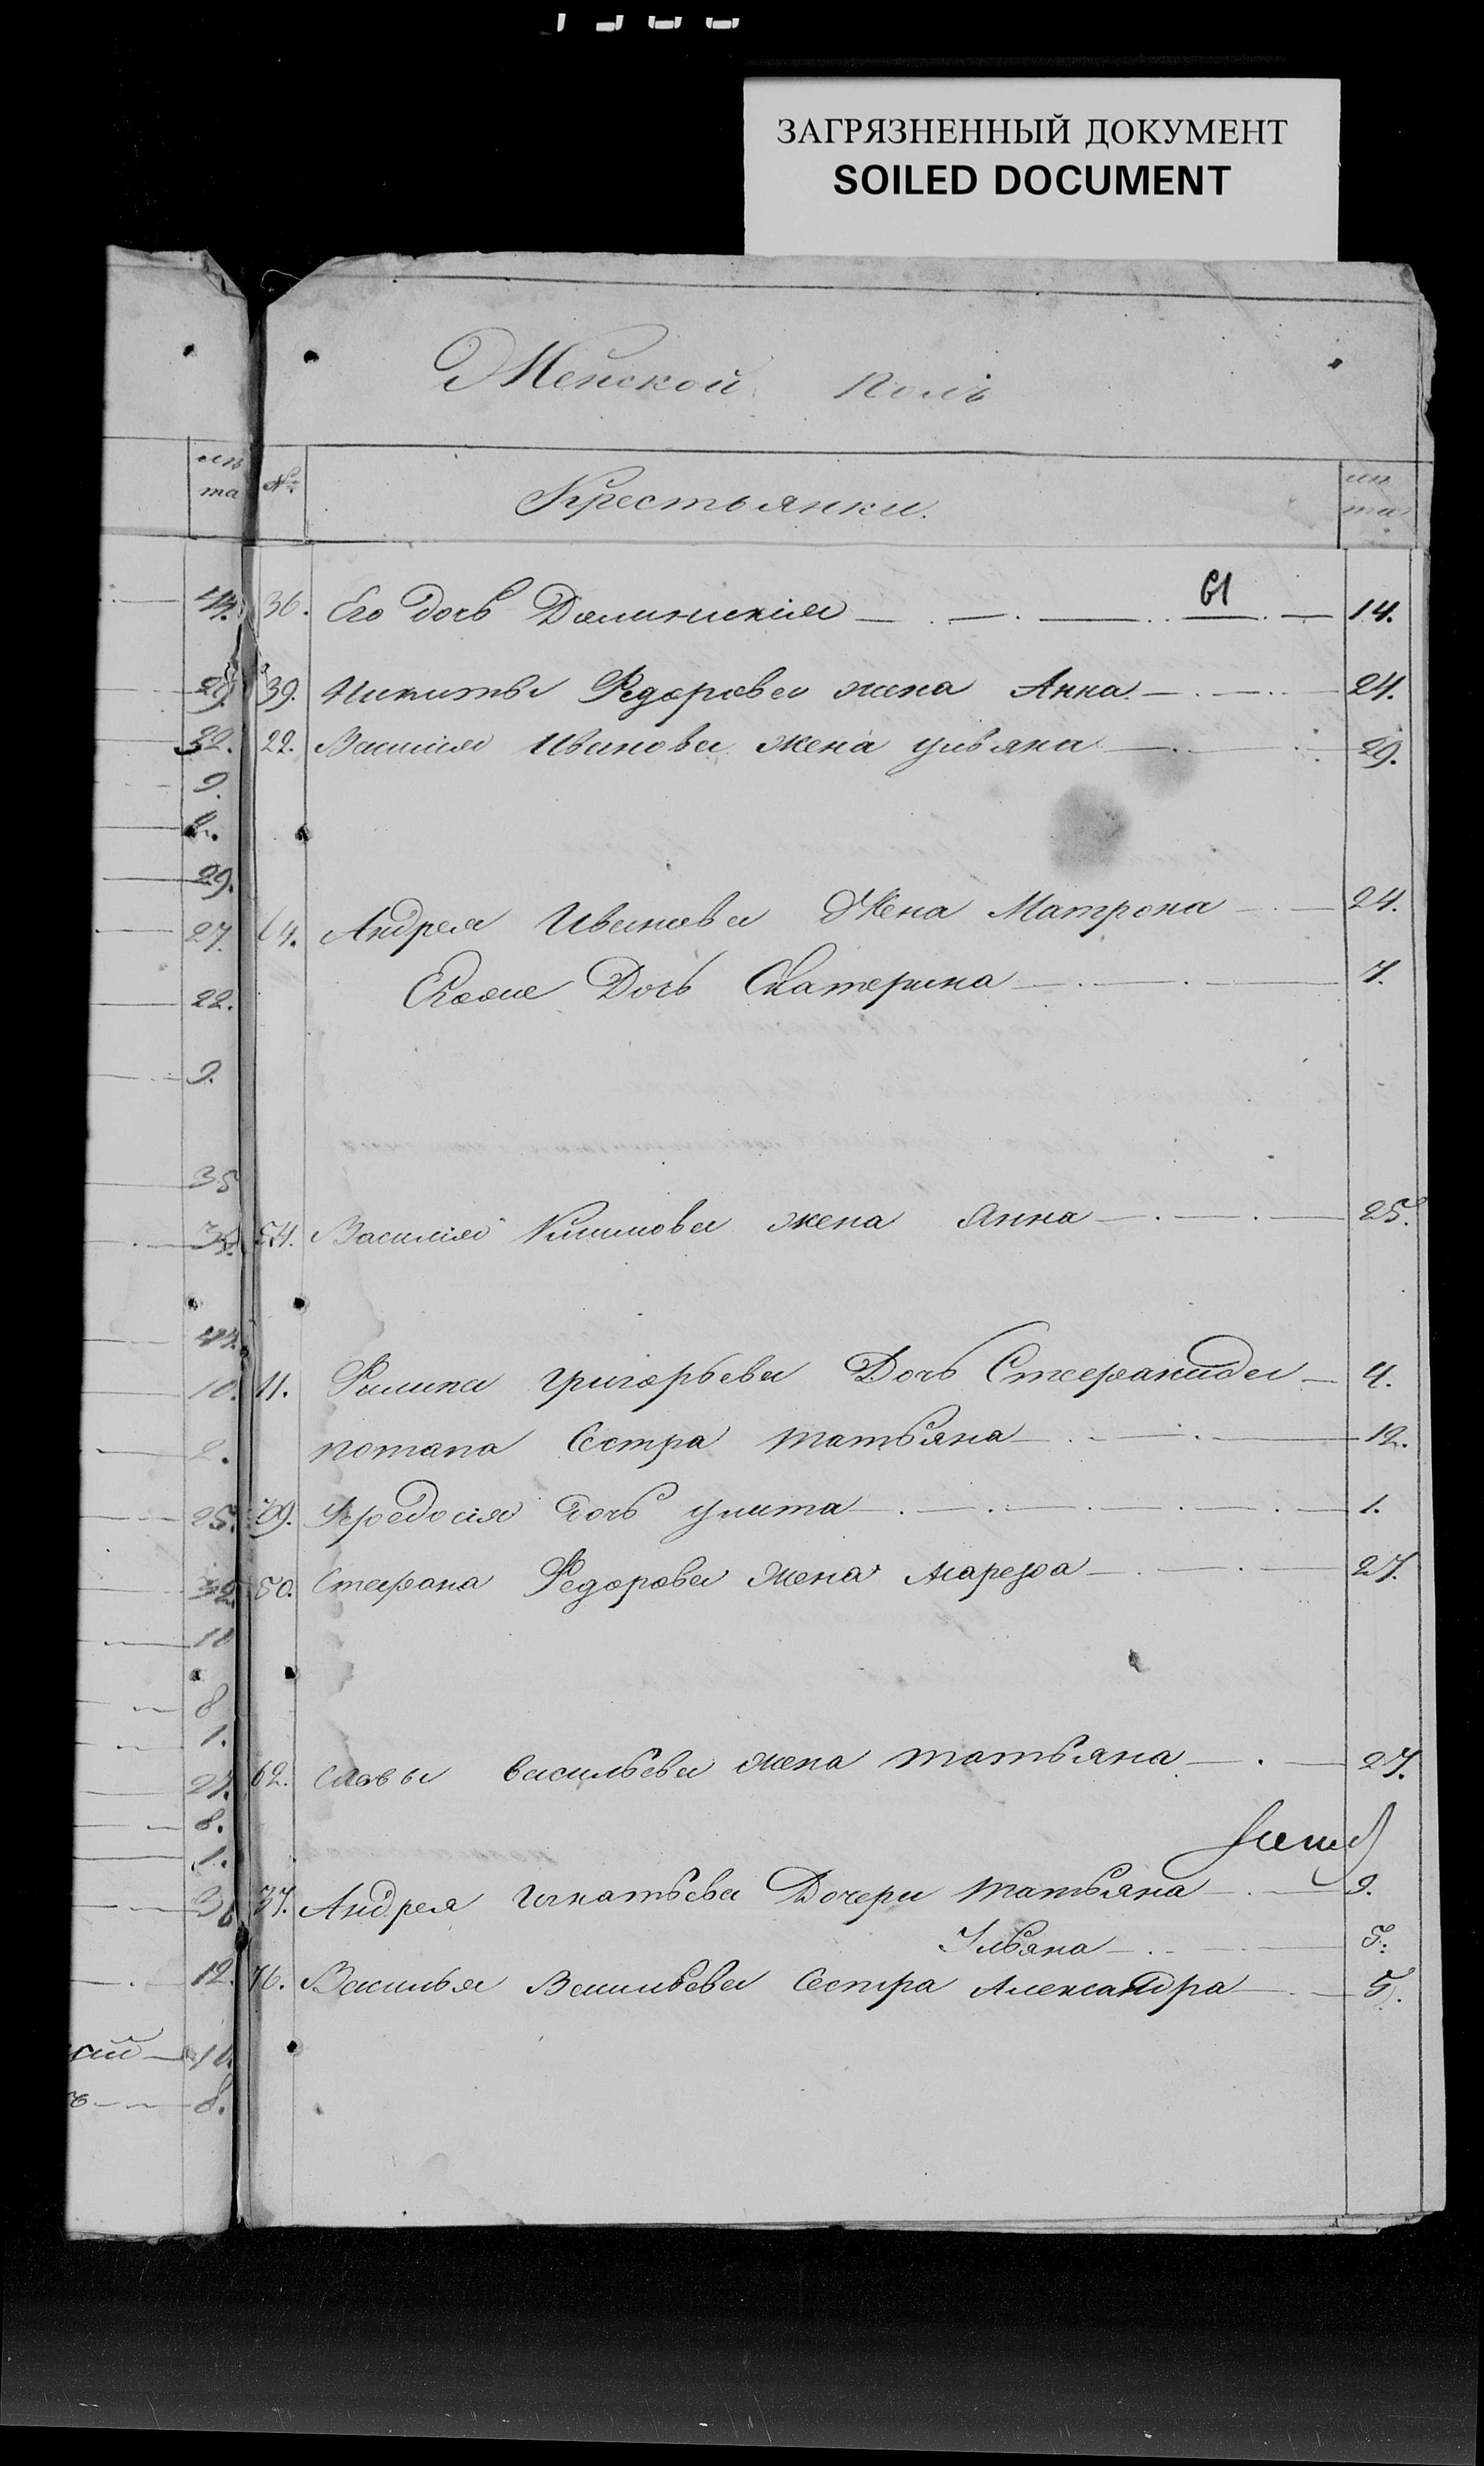 ЗАГРЯЗНЕННЫЙ ДОКУМЕНТ
SOILED DOCUMENT
Женской полъ
лѣта № Крестьянки. лѣта
61
36. Его дочь Доминикія 14.
39. Никиты Федорова жена Анна 24.
22. Василія Иванова жена ульяна 29.
64. Андрея Иванова Жена Матрона 24.
Егоже Дочь Екатерина 7.
54. Василія Климова жена Анна 25.
11. Филипа григорьева Дочь Стефанида 4.
потапа Сестра татьяна 12.
Феодосія дочь улита 1.
80. Стефана Федорова жена марефа 27.
62. Савы васильева жена татьяна 27.
37. Андрея игнатьева Дочери татьяна 9.
Ульяна 5.
76. Василья Васильева Сестра Александра 5.
29.
32.
9.
29.
27.
22.
9.
35
10.
2.
25.
32.
10
8
1.
27.
8.
1.
36
12.
10.
8.